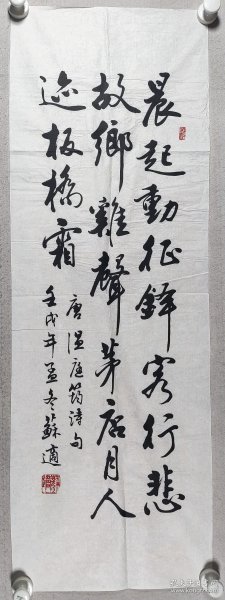 晨起動征鐸客行悲
故鄉雞聲茅店月人
迹板橋霜
唐溫庭筠詩句
壬戌年孟冬蘇適